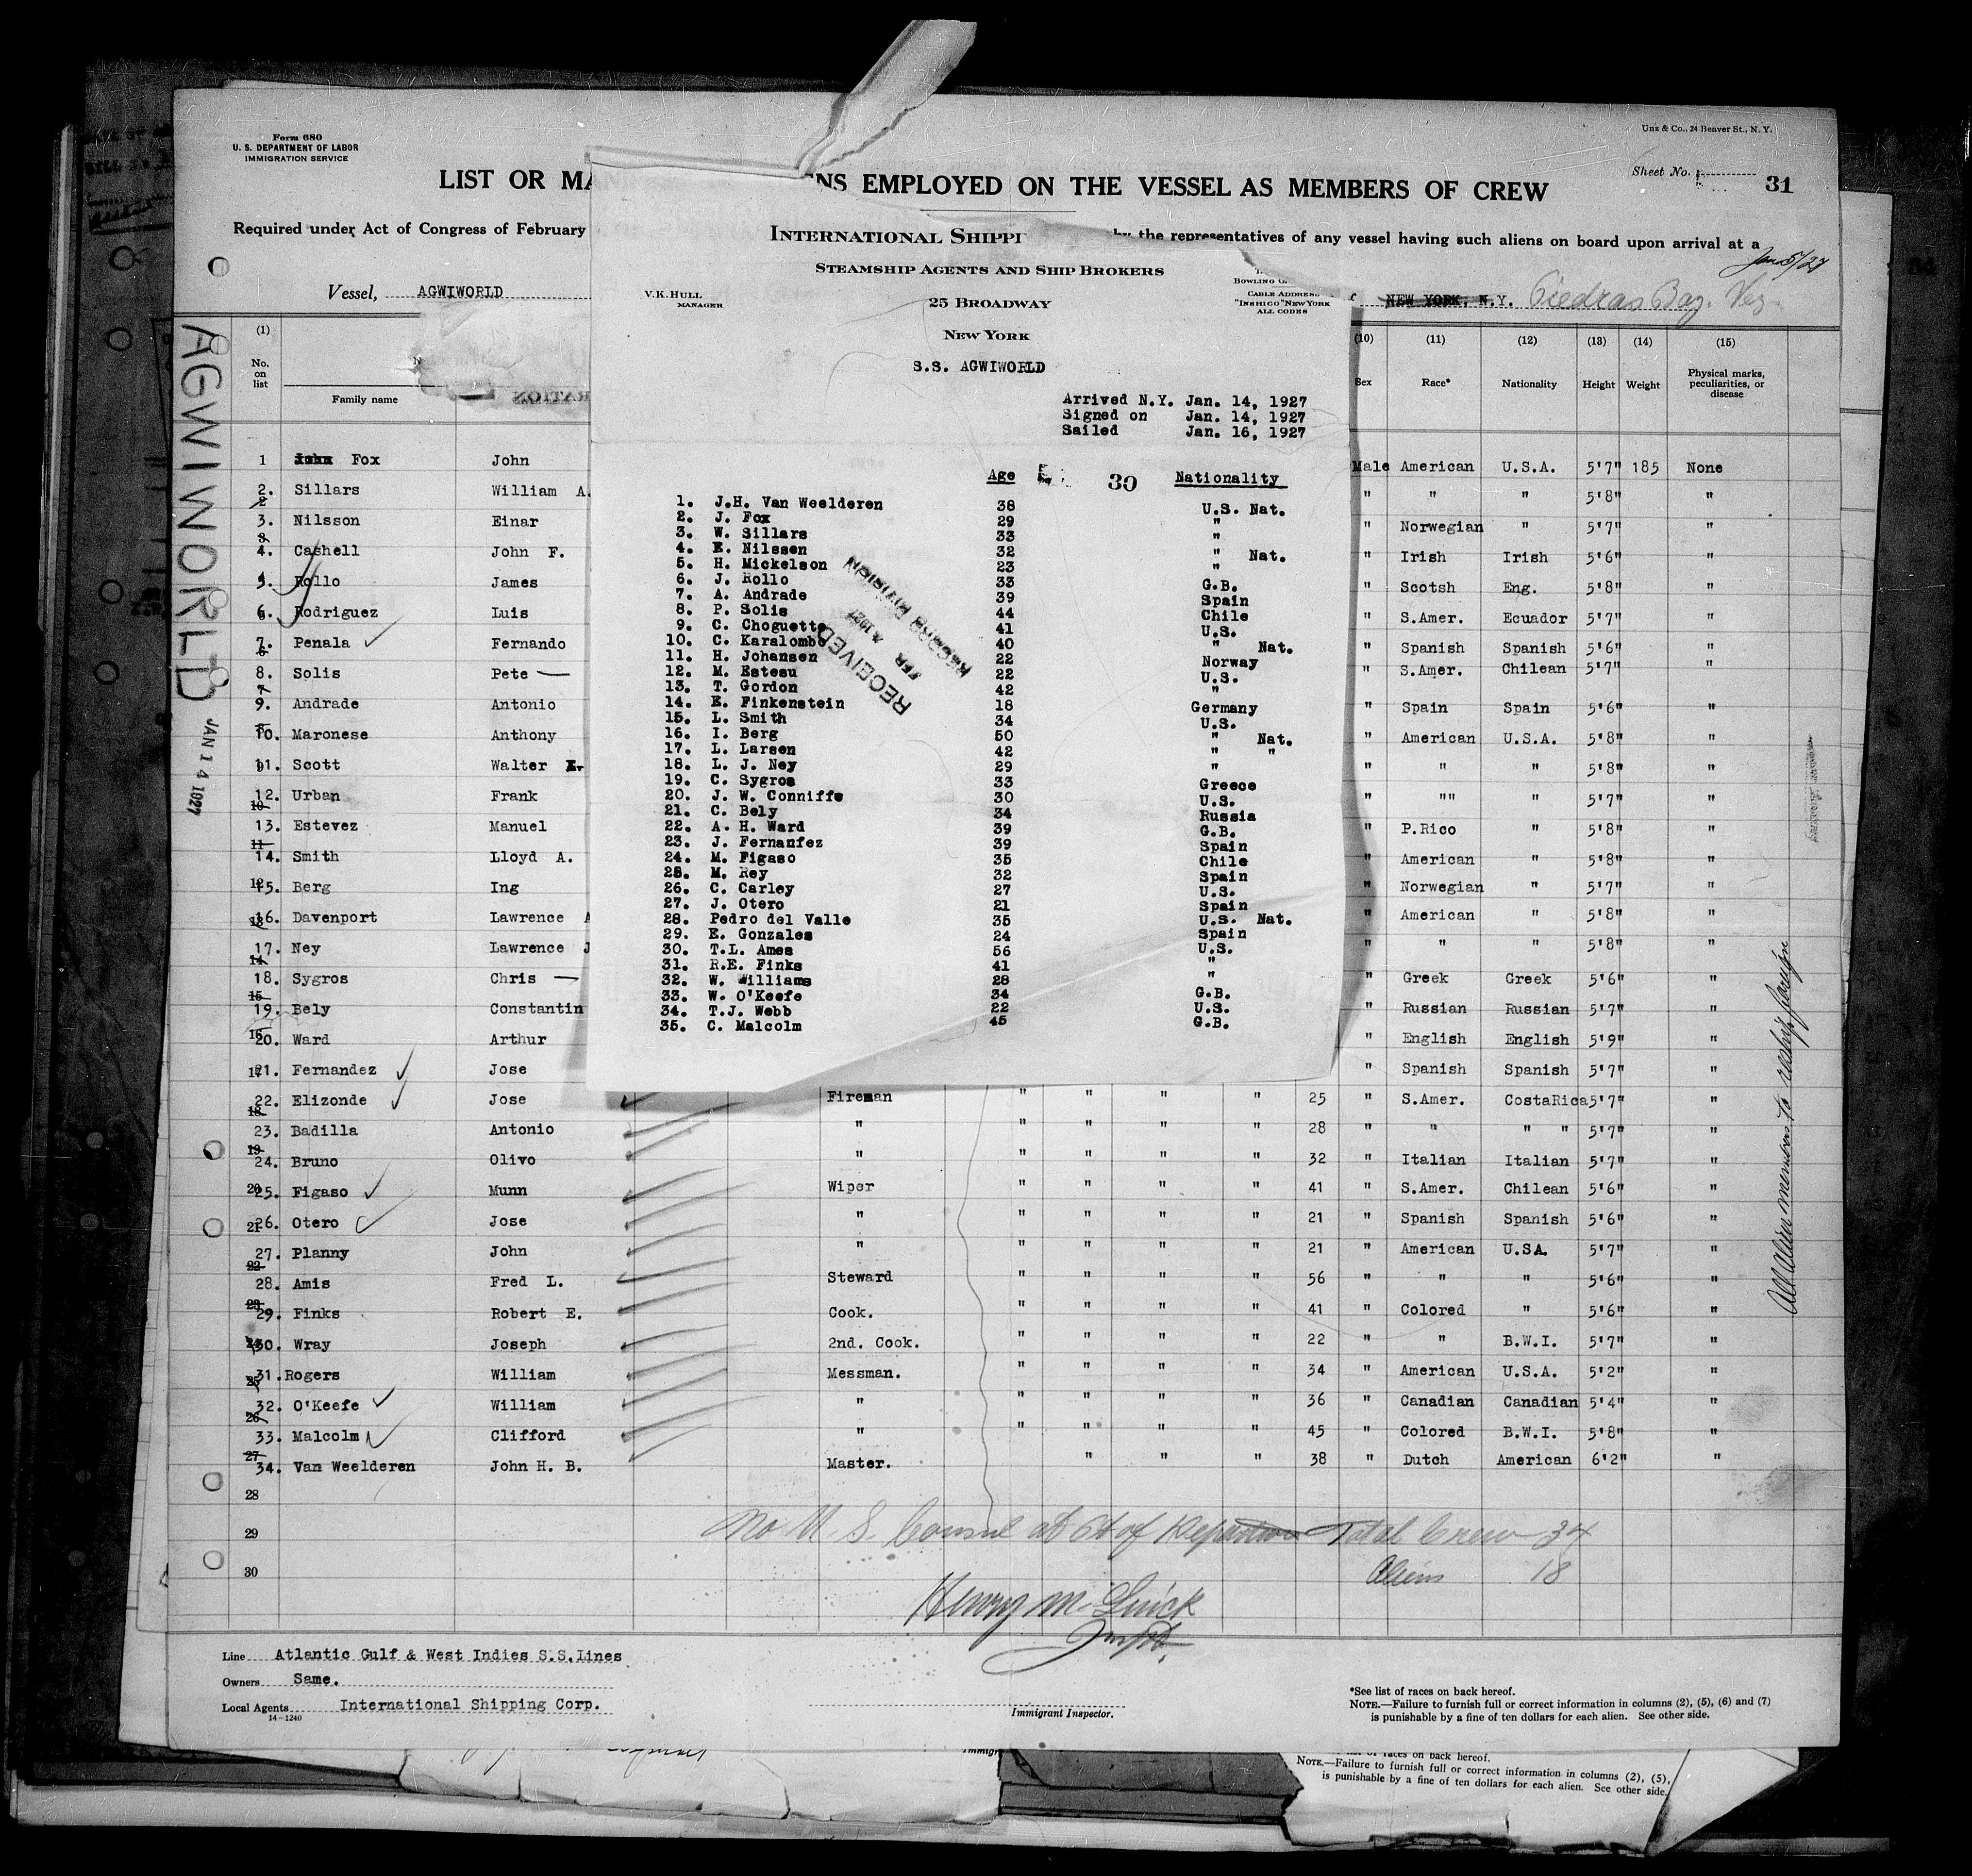 Form 680
U. S. DEPARTMENT OF LABOR
IMMIGRATION SERVICE
Unz & Co., 24 Beaver St., N. Y.
Sheet No.
31
LIST OR MA
NS EMPLOYED ON THE VESSEL AS MEMBERS OF CREW
Required under Act of Congress of February
by the representatives of any vessel having such aliens on board upon arrival at a
Jan 5/27
Vessel, AGWIWORLD
NEW YORK, N.Y. Piedras Bay. Vez
AGWIWORLD
JAN 14 1927
INTERNATIONAL SHIPPI
STEAMSHIP AGENTS AND SHIP BROKERS
V.K. HULL
MANAGER
25 BROADWAY
NEW YORK
BOWLING G
CABLE ADDRESS
"INSHICO" NEW YORK
ALL CODES
S.S. AGWIWORLD
Arrived N.Y. Jan. 14, 1927
Signed on Jan. 14, 1927
Sailed Jan. 16, 1927
Age 30 Nationality
1. J.H. Van Weelderen 38 U.S. Nat.
2. J. Fox 29 "
3. W. Sillars 33 "
4. E. Nilssen 32 " Nat.
5. H. Mickelson 23 "
6. J. Rollo 33 G.B.
7. A. Andrade 39 Spain
8. P. Solis 44 Chile
9. C. Choguette 41 U.S.
10. C. Karalombo 40 " Nat.
11. H. Johansen 22 Norway
12. M. Estesu 22 U.S.
13. T. Gordon 42 "
14. E. Finkenstein 18 Germany
15. L. Smith 34 U.S.
16. I. Berg 50 " Nat.
17. L. Larsen 42 " "
18. L. J. Ney 29 "
19. C. Sygros 33 Greece
20. J. W. Conniffe 30 U.S.
21. C. Bely 34 Russia
22. A. H. Ward 39 G.B.
23. J. Fernanfez 39 Spain
24. M. Figaso 35 Chile
25. M. Rey 32 Spain
26. C. Carley 27 U.S.
27. J. Otero 21 Spain
28. Pedro del Valle 35 U.S. Nat.
29. E. Gonzales 24 Spain
30. T.L. Ames 56 U.S.
31. R.E. Finks 41 "
32. W. Williams 28 "
33. W. O'Keefe 34 G.B.
34. T.J. Webb 22 U.S.
35. C. Malcolm 45 G.B.
RECEIVED
1927
RECORD DIVISION
(1) (10) (11) (12) (13) (14) (15)
No. on list
Family name
Sex Race* Nationality Height Weight Physical marks, peculiarities, or disease
1 Fox John Male American U.S.A. 5'7" 185 None
2. Sillars William A. " " " 5'8" "
3. Nilsson Einar " Norwegian " 5'7" "
4. Cashell John F. " Irish Irish 5'6" "
5. Rollo James " Scotsh Eng. 5'8" "
6. Rodriguez Luis " S.Amer. Ecuador 5'7" "
7. Penala Fernando " Spanish Spanish 5'6" "
8. Solis Pete " S.Amer. Chilean 5'7" "
9. Andrade Antonio " Spain Spain 5'6" "
10. Maronese Anthony " American U.S.A. 5'8" "
11. Scott Walter " " " 5'8" "
12. Urban Frank " "" " 5'7" "
13. Estevez Manuel " P.Rico " 5'8" "
14. Smith Lloyd A. " American " 5'8" "
15. Berg Ing " Norwegian " 5'7" "
16. Davenport Lawrence A " American " 5'8" "
17. Ney Lawrence J " " " 5'8" "
18. Sygros Chris " Greek Greek 5'6" "
19. Bely Constantin " Russian Russian 5'7" "
20. Ward Arthur " English English 5'9" "
21. Fernandez Jose " Spanish Spanish 5'7" "
22. Elizonde Jose Fireman " " " " 25 " S.Amer. CostaRica 5'7" "
23. Badilla Antonio " " " " " 28 " " " " 5'7" "
24. Bruno Olivo " " " " " 32 " Italian Italian 5'7" "
25. Figaso Munn Wiper " " " " 41 " S.Amer. Chilean 5'6" "
26. Otero Jose " " " " " 21 " Spanish Spanish 5'6" "
27. Planny John " " " " " 21 " American U.SA. 5'7" "
28. Amis Fred L. Steward " " " " 56 " " " 5'6" "
29. Finks Robert E. Cook. " " " " 41 " Colored " 5'6" "
30. Wray Joseph 2nd. Cook. " " " " 22 " " B.W.I. 5'7" "
31. Rogers William Messman. " " " " 34 " American U.S.A. 5'2" "
32. O'Keefe William " " " " " 36 " Canadian Canadian 5'4" "
33. Malcolm Clifford " " " " " 45 " Colored B.W.I. 5'8" "
34. Van Weelderen John H. B. Master. " " " 38 " Dutch American 6'2" "
28
29
30
All alien members to reship foreign
No U S Consul at Pt of Departure Total Crew 34
Aliens 18
Henry M.
Insp.
Line Atlantic Gulf & West Indies S.S.Lines
Owners Same.
Local Agents International Shipping Corp.
14-1240
Immigrant Inspector.
*See list of races on back hereof.
NOTE.—Failure to furnish full or correct information in columns (2), (5), (6) and (7)
is punishable by a fine of ten dollars for each alien. See other side.
Immigr
list of races on back hereof.
NOTE.—Failure to furnish full or correct information in columns (2), (5),
is punishable by a fine of ten dollars for each alien. See other side.